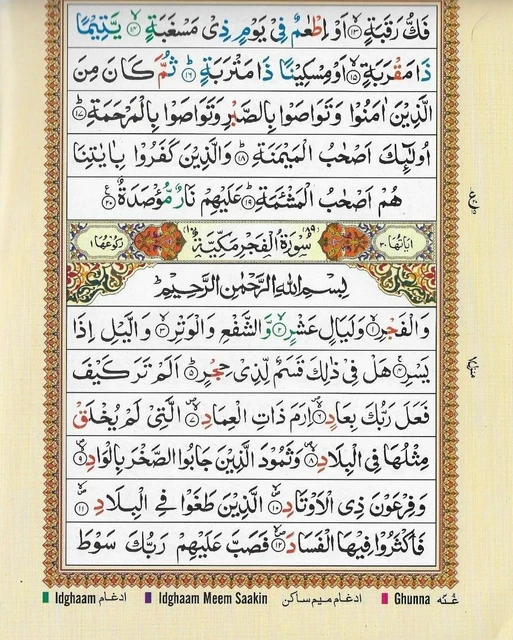 فَكُّ رَقَبَةٍ ۙ﴿۱۳﴾ اَوْ اِطْعٰمٌ فِیْ یَوْمٍ ذِیْ مَسْغَبَةٍ ۙ﴿۱۴﴾ یَّتِیْمًا
ذَا مَقْرَبَةٍ ۙ﴿۱۵﴾ اَوْ مِسْكِیْنًا ذَا مَتْرَبَةٍ ؕ﴿۱۶﴾ ثُمَّ كَانَ مِنَ
الَّذِیْنَ اٰمَنُوْا وَتَوَاصَوْا بِالصَّبْرِ وَتَوَاصَوْا بِالْمَرْحَمَةِ ؕ﴿۱۷﴾
اُولٰٓئِكَ اَصْحٰبُ الْمَیْمَنَةِ ؕ﴿۱۸﴾ وَالَّذِیْنَ كَفَرُوْا بِاٰیٰتِنَا
هُمْ اَصْحٰبُ الْمَشْئَمَةِ ؕ﴿۱۹﴾ عَلَیْهِمْ نَارٌ مُّؤْصَدَةٌ ﴿۲۰﴾
اٰیَاتُهَا ۳۰ سُوْرَةُ الْفَجْرِ مَكِّیَّةٌ رُكُوْعُهَا ۱
بِسْمِ اللهِ الرَّحْمٰنِ الرَّحِیْمِ
وَالْفَجْرِ ۙ﴿۱﴾ وَلَیَالٍ عَشْرٍ ۙ﴿۲﴾ وَّالشَّفْعِ وَالْوَتْرِ ۙ﴿۳﴾ وَالَّیْلِ اِذَا
یَسْرِ ۚ﴿۴﴾ هَلْ فِیْ ذٰلِكَ قَسَمٌ لِّذِیْ حِجْرٍ ؕ﴿۵﴾ اَلَمْ تَرَ كَیْفَ
فَعَلَ رَبُّكَ بِعَادٍ ۙ﴿۶﴾ اِرَمَ ذَاتِ الْعِمَادِ ۙ﴿۷﴾ الَّتِیْ لَمْ یُخْلَقْ
مِثْلُهَا فِی الْبِلَادِ ۙ﴿۸﴾ وَثَمُوْدَ الَّذِیْنَ جَابُوا الصَّخْرَ بِالْوَادِ ۙ﴿۹﴾
وَفِرْعَوْنَ ذِی الْاَوْتَادِ ۙ﴿۱۰﴾ الَّذِیْنَ طَغَوْا فِی الْبِلَادِ ۙ﴿۱۱﴾
فَاَكْثَرُوْا فِیْهَا الْفَسَادَ ۙ﴿۱۲﴾ فَصَبَّ عَلَیْهِمْ رَبُّكَ سَوْطَ
Idghaam ادغام Idghaam Meem Saakin ادغام میم ساکن Ghunna غُنّه